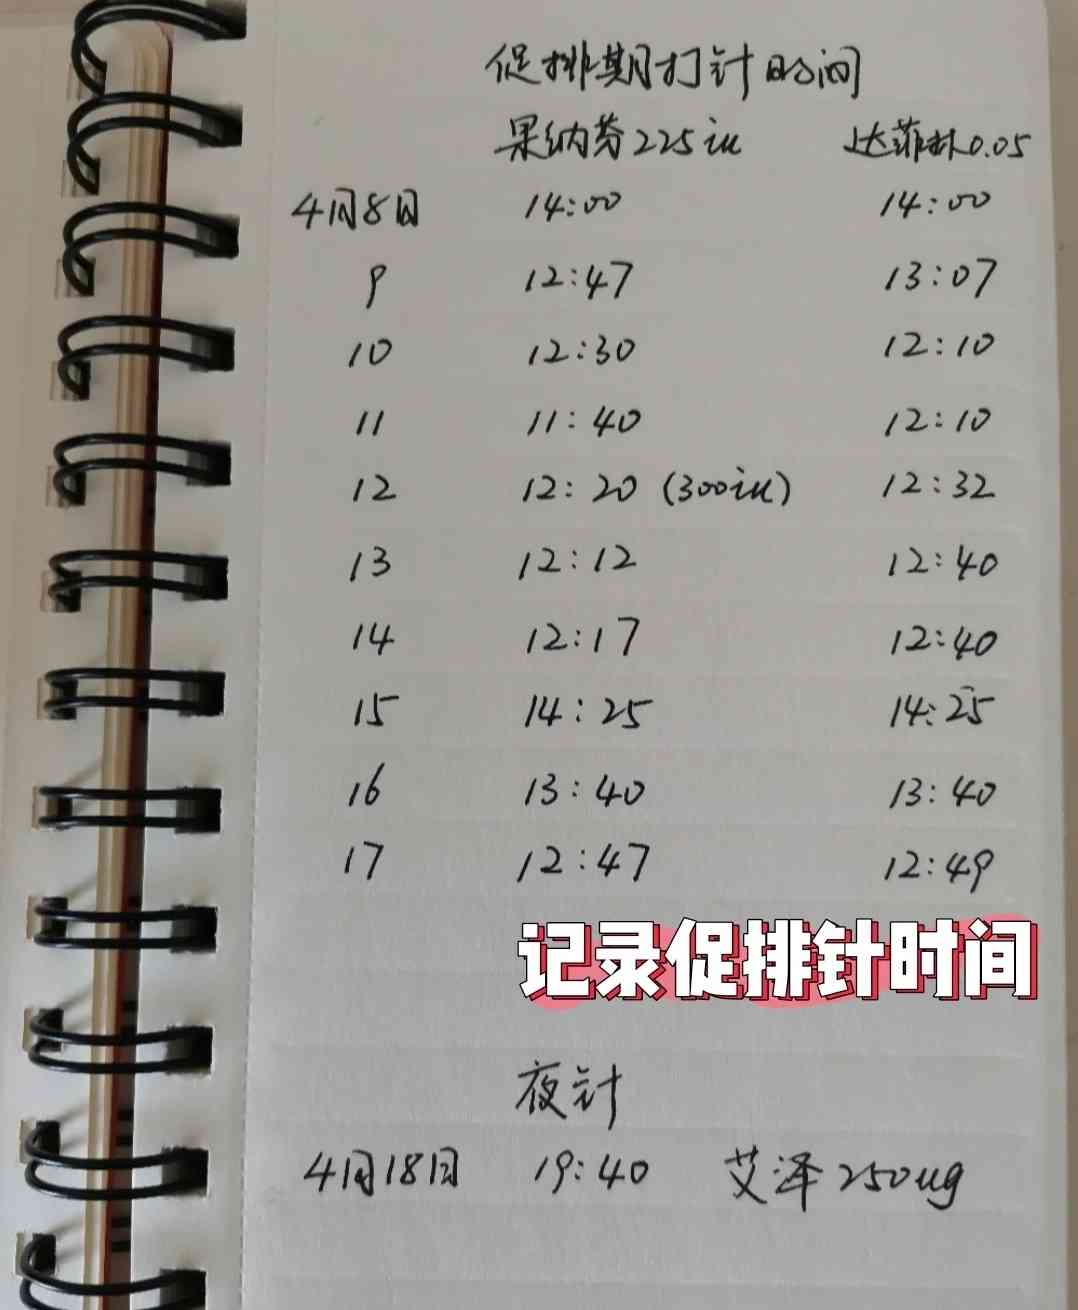 促排期打针时间
果纳芬225iu 达菲林0.05
4月8日 14:00 14:00
9 12:47 13:07
10 12:30 12:10
11 11:40 12:10
12 12:20 (300iu) 12:32
13 12:12 12:40
14 12:17 12:40
15 14:25 14:25
16 13:40 13:40
17 12:47 12:49
记录促排针时间
夜针
4月18日 19:40 艾泽250ug